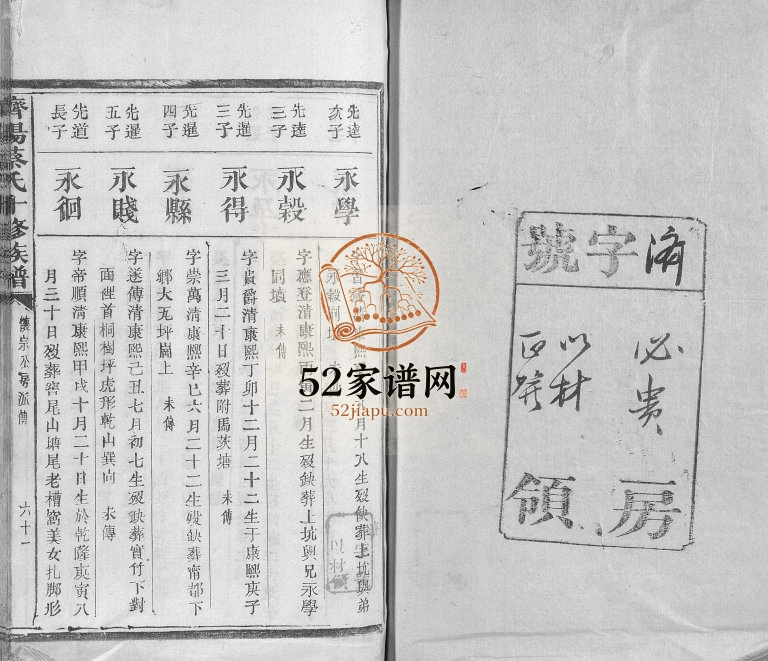 濟字號
必貴
以材
房
領
先逵
次子
永學
月十八生歿缺葬上坑與弟
永穀同墳
先逵
三子
永穀
字應登清康熙丙寅二月生歿缺葬上坑與兄永學
同墳 未傳
先暹
三子
永得
字貴爵清康熙丁卯十二月二十二生于康熙庚子
三月二十日歿葬附馬茨塘 未傳
先暹
四子
永縣
字崇萬清康熙辛巳六月二十二生歿缺葬甯都下
鄉大瓦坪崗上 未傳
先暹
五子
永賤
字遂傳清康熙己丑七月初七生歿缺葬竹下對
面裡首桐樹坪虎形乾山巽向 未傳
先道
長子
永徊
字帝順清康熙甲戌十月二十日生於乾隆庚寅八
月三十日歿葬窖尾山塘尾老槽窩美女扎脚形
濟陽蔡氏十修族譜
懷宗公房派傳
六十一
以材
52家谱网
52jiapu.com